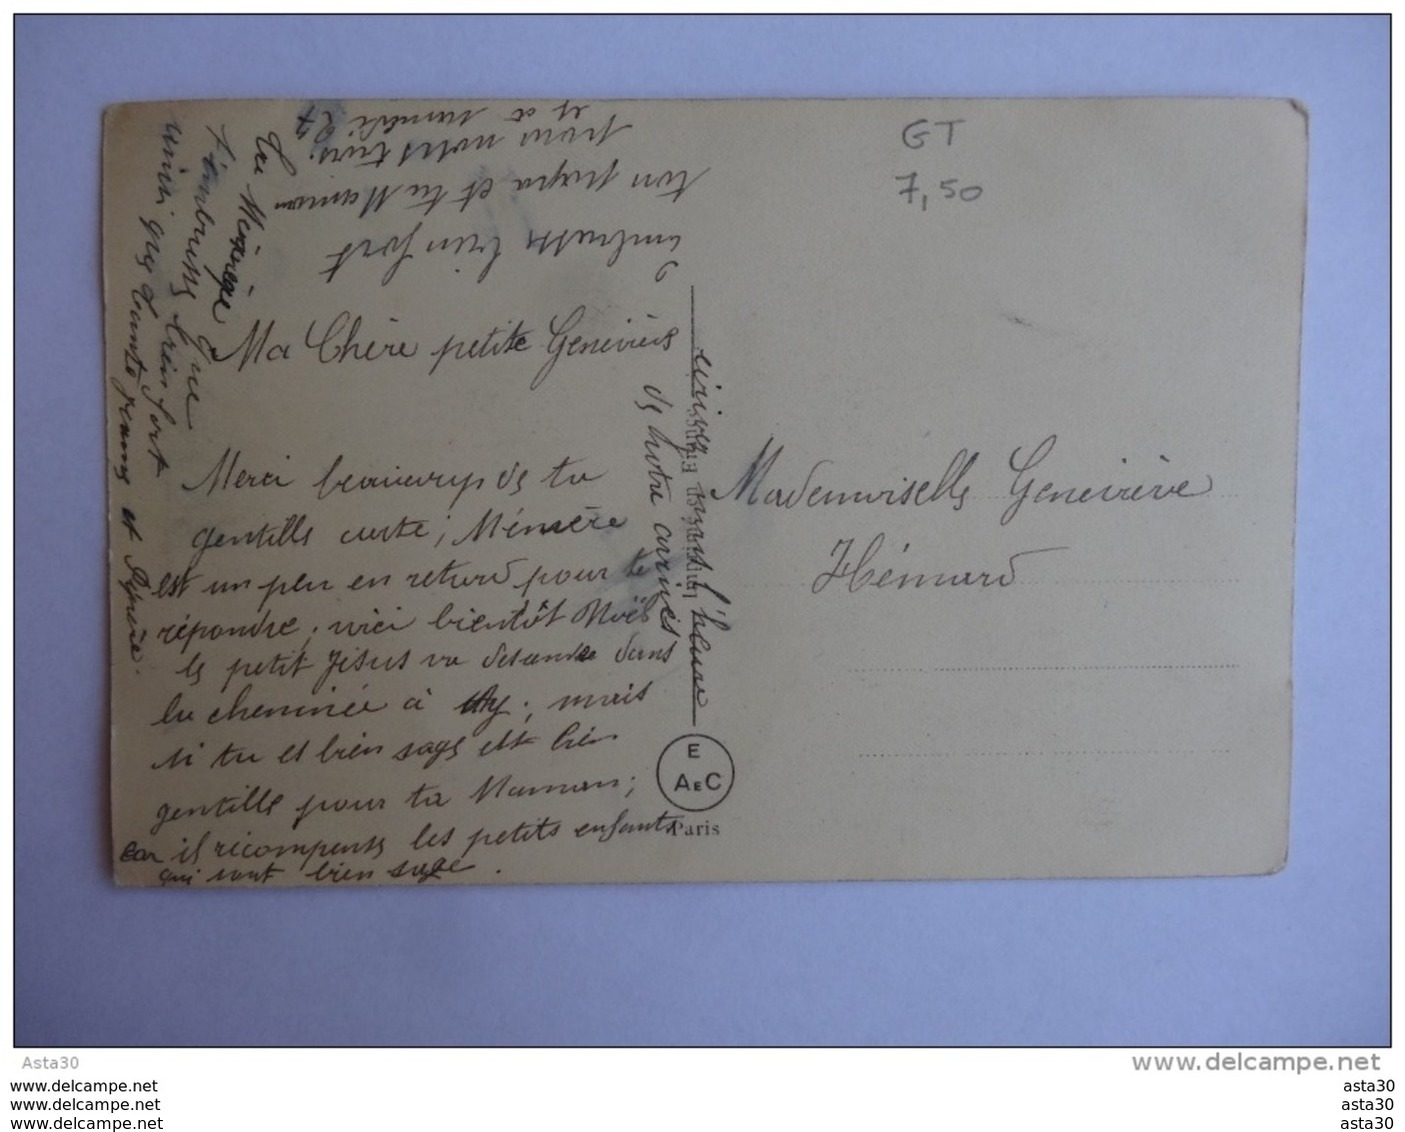 GT
7,50
Ma Chère petite Geneviève
Merci beaucoup de ta
gentille carte, Mémère
est un peu en retard pour te
répondre, voici bientôt Noël
le petit Jésus va desandre dans
la cheminée à Ay, mais
si tu es bien sage et bien
gentille pour ta Maman;
Car il récompense les petits enfants
qui sont bien sage.
Ta Mémère que
t'embrasse bien fort
ainsi que tante jeanne et
embrasse bien fort
ton papa et ta Maman
pour nous trois.
et à
de notre
l'heure
Mademoiselle Geneviève
Hémard
E
AEC
Paris
Asta30
www.delcampe.net
www.delcampe.net
www.delcampe.net
www.delcampe.net
asta30
asta30
asta30